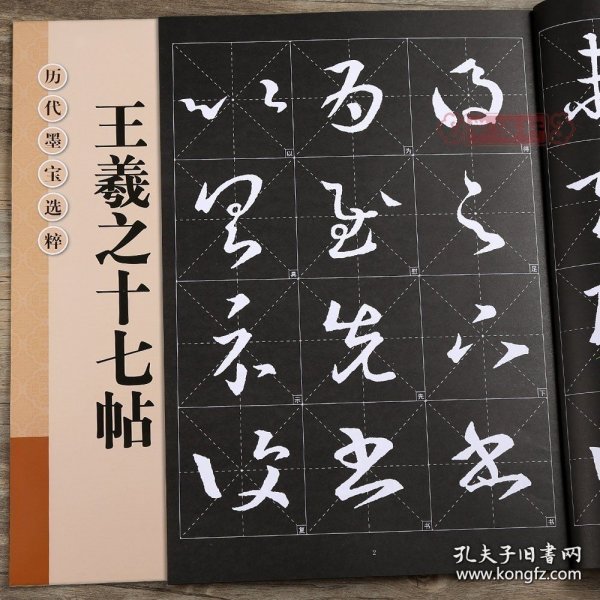 历代墨宝选粹
王羲之十七帖
得足下书
为慰先书
以具示复
2
孔夫子旧書网
www.kongfz.com